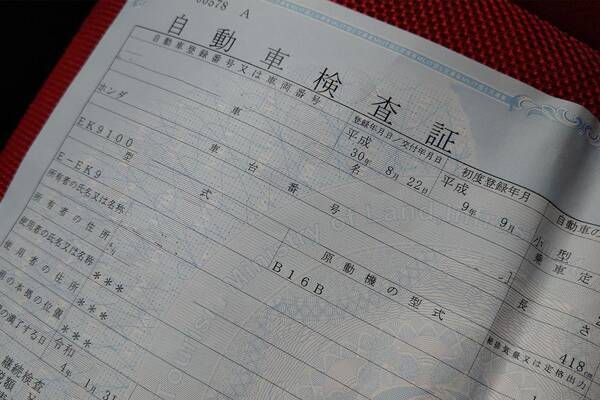 00578 A
自動車検査証
自動車登録番号又は車両番号
登録年月日/交付年月日
初度登録年月
自動車の
平成
30年 8月 22日
平成
9年 9月
小型
車名
ホンダ
乗車定
車台番号
EK9100
長さ
型式
E-EK9
原動機の型式
B16B
418cm
総排気量又は定格出力
所有者の氏名又は名称
所有者の住所
使用者の氏名又は名称
***
使用者の住所
***
の本拠の位置
***
の満了する日
令和
4年 1月 31
継続検査